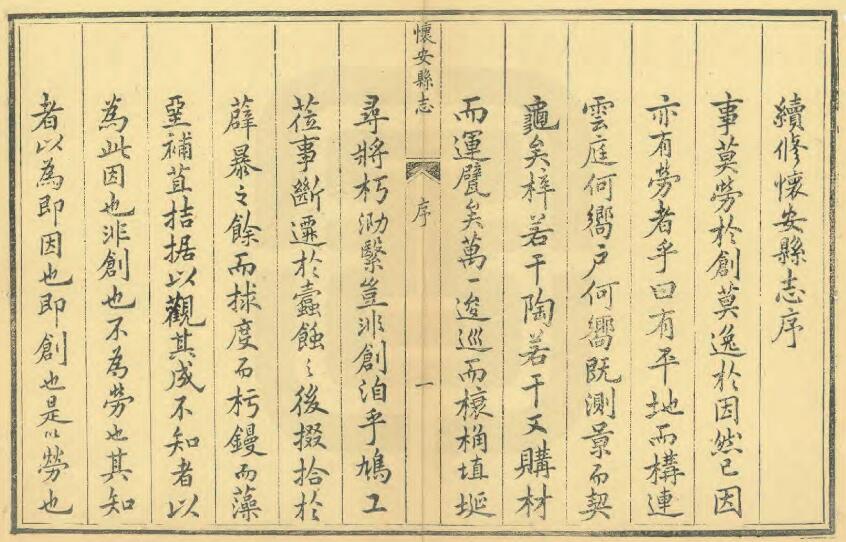 續修懷安縣志序
事莫勞於創莫逸於因然已因
亦有勞者乎曰有平地而構連
雲庭何嚮戶何嚮既測景而契
龜矣梓若干陶若干又購材
而運甓矣萬一逡巡而榱桷埴埏
懷安縣志
序
一
尋將朽泐繄豈非創洎乎鳩工
莅事斷遷於蠹蝕之後掇拾於
薜暴之餘而捄度而杇鏝而藻
堊補苴拮据以觀其成不知者以
為此因也非創也不為勞也其知
者以為即因也即創也是以勞也